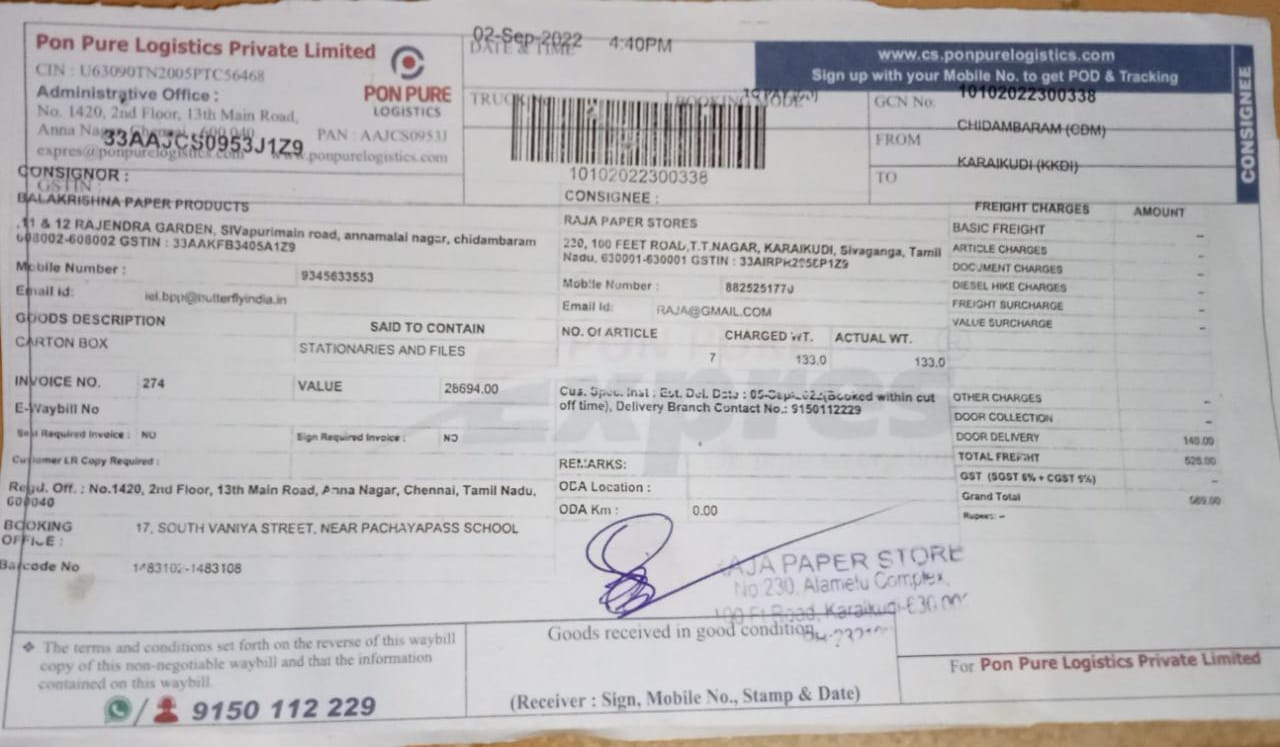 Pon Pure Logistics Private Limited
CIN : U63090TN2005PTC56468
Administrative Office :
No. 1420, 2nd Floor, 13th Main Road,
Anna Nagar, Chennai, 600 040
PAN : AAJCS0953J
33AAJCS0953J1Z9
expres@ponpurelogistics.com www.ponpurelogistics.com
GSTIN :
PON PURE
LOGISTICS
02-Sep-2022 4:40PM
DATE & TIME
BOOKING MODE
10102022300338
www.cs.ponpurelogistics.com
Sign up with your Mobile No. to get POD & Tracking
GCN No. 10102022300338
FROM CHIDAMBARAM (CDM)
TO KARAIKUDI (KKDI)
CONSIGNEE
CONSIGNOR :
BALAKRISHNA PAPER PRODUCTS
11 & 12 RAJENDRA GARDEN, SIVapurimain road, annamalai nagar, chidambaram
608002-608002 GSTIN : 33AAKFB3405A1Z9
Mobile Number : 9345633553
Email id: iel.bpp@butterflyindia.in
CONSIGNEE :
RAJA PAPER STORES
230, 100 FEET ROAD,T.T.NAGAR, KARAIKUDI, Sivaganga, Tamil
Nadu, 630001-630001 GSTIN :
Mobile Number :
Email Id: RAJA@GMAIL.COM
GOODS DESCRIPTION SAID TO CONTAIN
CARTON BOX STATIONARIES AND FILES
NO. Of ARTICLE CHARGED WT. ACTUAL WT.
7 133.0 133.0
INVOICE NO. 274 VALUE 28694.00
E-Waybill No
Seal Required Invoice : NO Sign Required Invoice : NO
Customer LR Copy Required :
Cus. Spec. Inst : Est. Del. Date : (Booked within cut
off time), Delivery Branch Contact No.: 9150112229
REMARKS:
ODA Location :
ODA Km : 0.00
Regd. Off. : No.1420, 2nd Floor, 13th Main Road, Anna Nagar, Chennai, Tamil Nadu,
600040
BOOKING
OFFICE : 17, SOUTH VANIYA STREET, NEAR PACHAYAPASS SCHOOL
Barcode No 1483102-1483108
FREIGHT CHARGES AMOUNT
BASIC FREIGHT –
ARTICLE CHARGES –
DOCUMENT CHARGES –
DIESEL HIKE CHARGES –
FREIGHT SURCHARGE –
VALUE SURCHARGE –
OTHER CHARGES –
DOOR COLLECTION –
DOOR DELIVERY 140.00
TOTAL FREIGHT
GST –
Grand Total
Rupees: –
PON PURE
Expres
RAJA PAPER STORE
No:230, Alamelu Complex,
100 Ft Road, Karaikudi
Goods received in good condition
(Receiver : Sign, Mobile No., Stamp & Date)
❖ The terms and conditions set forth on the reverse of this waybill
copy of this non-negotiable waybill and that the information
contained on this waybill.
9150 112 229
For Pon Pure Logistics Private Limited